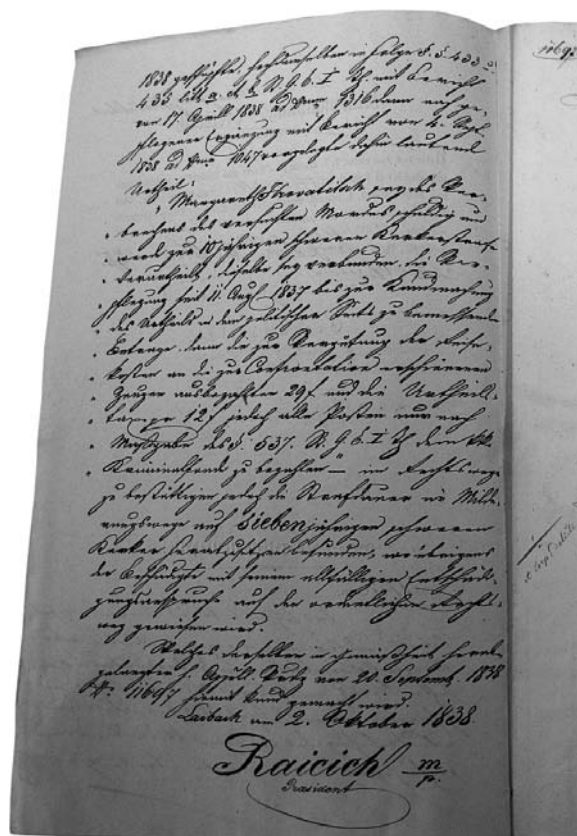 1838 geschöpfte, hochdemselben in Folge §. §. 433 u.
435 litt. a. et b. St. G. B. I Th. mit Bericht
vom 17. April 1838 ad Num 1316 dann nach ge-
pflogener Ergänzung mit Bericht vom 4. Sept.
1838 ad Num 1047 vorgelegte dahin lautende
Urtheil:
„ Margareth sey des Ver-
„ brechens des versuchten Mordes schuldig und
„ werde zur 10 jährigen schweren Kerkerstrafe
„ verurtheilt, dieselbe sey verbunden, die Ver-
pflegung seit 11. Aug 1837 bis zur Kundmachung
„ des Urtheils in dem politischer Seits zu bemessenden
„ Betrage, dann die zur Vergütung der Reise-
„ kosten an die zur Confrontation erschienenen
„ Zeugen ausbezahlten 29 f und die Urtheils-
„ taxe pr 12 f jedoch alle Posten nur nach
„ Maßgabe des §. 537. St. G. B. I Th dem kk.
„ Kriminalfonde zu bezahlen“ – im Rechtswege
zu bestättigen jedoch die Strafdauer im Milde-
rungswege auf sieben jährigen schweren
Kerker herabzusetzen befunden, wo übrigens
der Beschädigte mit seinem allfälligen Entschädi-
gungsanspruche auf den ordentlichen Rechts-
weg gewiesen wird.
Welches derselben in Gemäßheit herab-
gelangten h. Appell. Verordg vom 20. Septemb. 1838
hiemit kund gemacht wird.
Laibach am 2. Oktober 1838.
Raicich m/p.
Präsident